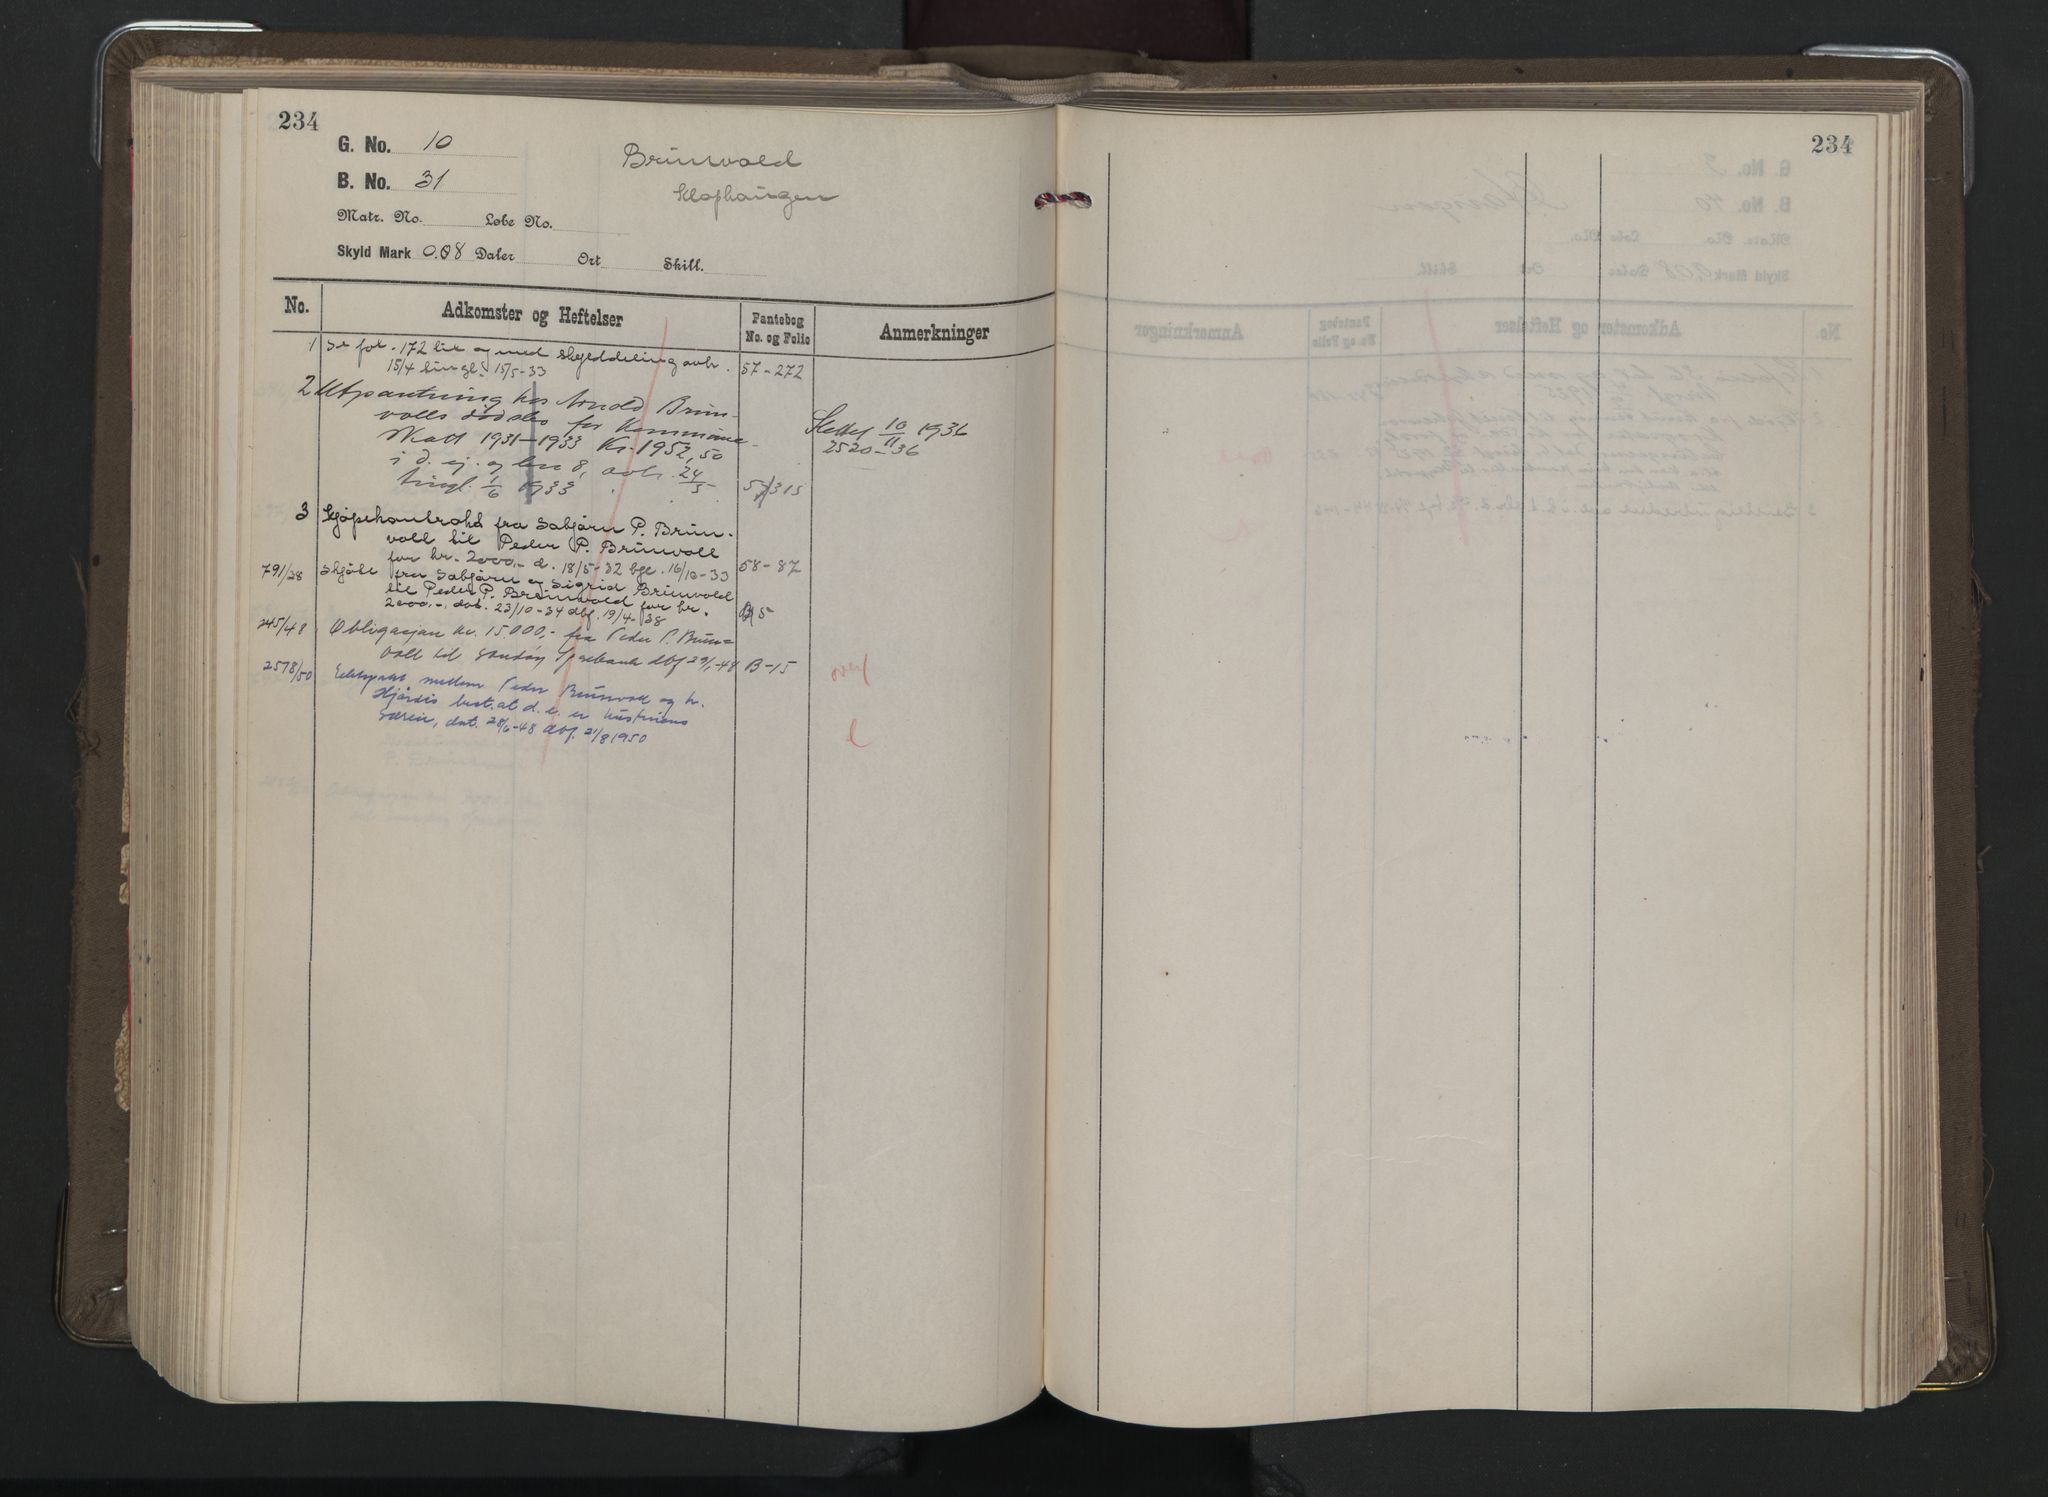 234
234
G. No. 10
B. No. 31
Brunvold
Klophaugen
Matr. No. Løbe No.
Skyld Mark 0.08 Daler Ort Skill.
No. Adkomster og Heftelser Pantebog No. og Folio Anmerkninger
1 Se fol. 172 lit og med skylddeling avh. 57-272
15/4 tingl. 15/5-33
2 Utpantning hos Arnold Brun-
volls dødsbo for Kommune-
skatt 1931-1933 Kr. 1952,50
i d. ej. og bnr 8, avh. 24/5
tingl. 1/6 1933 57/315
Slettet 10/11 1936
2520-36
3 Kjøpekontrakt fra Sabjørn P. Brun-
voll til Peder P. Brunvoll
for kr. 2000,- d. 18/5-32 bgl. 16/10-33 58-87
791/38 Skjøte fra Sabjørn og Sigrid Brunvold
til Peder P. Brunvold for kr.
2000,-, dat. 23/10-34 dbf. 19/4-38 5
245/48 Obligasjon kr. 15.000,- fra Peder P. Brun=
voll til Sandøy Sparebank dbf 29/1-48 B-15
2578/50 Ektepakt mellem Peder Brunvoll og h.
Hjørdis best. at d. e. er hustruens
særeie, dat. 28/6-48 dbf. 21/8 1950